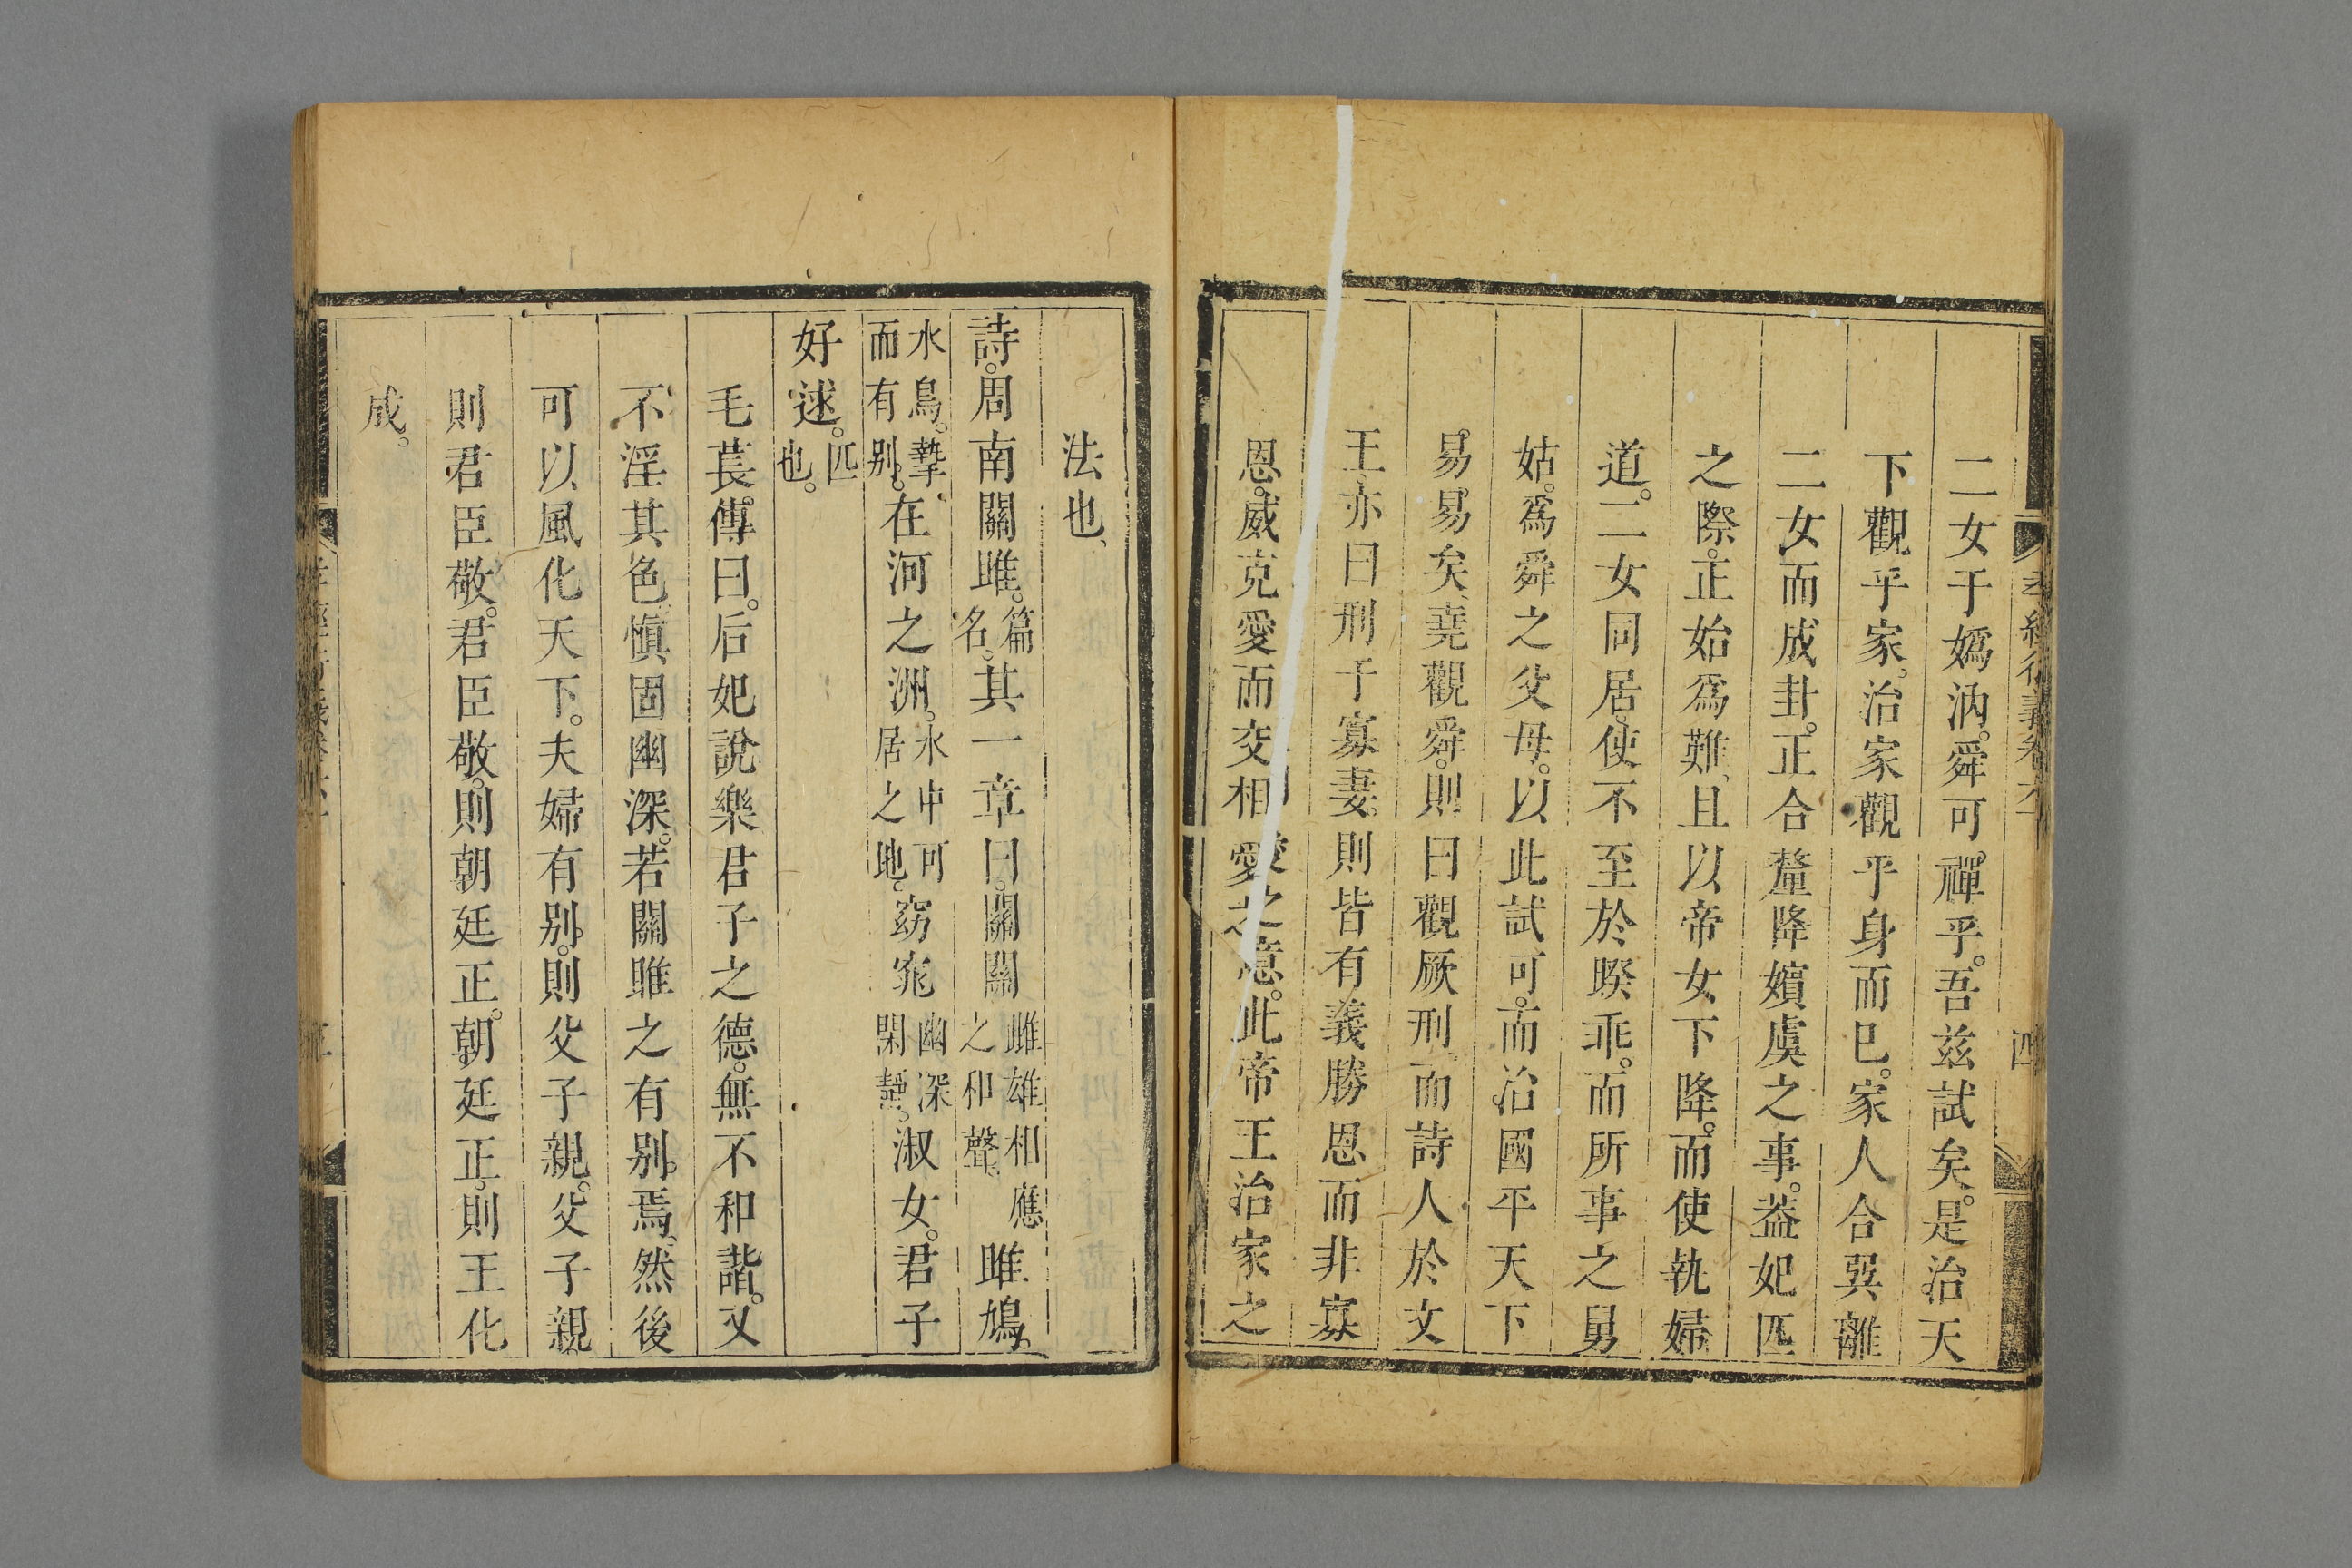 二女于嬀汭。舜可禪乎。吾兹試矣。是治天
下觀乎家。治家觀乎身而已。家人合巽離
二女而成卦。正合釐降嬪虞之事。葢妃匹
之際。正始爲難、且以帝女下降。而使執婦
道。二女同居。使不至於睽乖。而所事之舅
姑。爲舜之父母。以此試可。而治國平天下
易易矣。堯觀舜。則曰觀厥刑。而詩人於文
王。亦曰刑于寡妻。則皆有義勝恩而非寡
恩。威克愛而交相愛之意。此帝王治家之
四
法也、
詩。周南關雎。篇名。其一章曰。關關雌雄相應之和聲。雎鳩。
水鳥。摯而有别。在河之洲。水中可居之地。窈窕幽深閑靜。淑女。君子
好逑。匹也。
毛萇。傳曰。后妃說樂君子之德。無不和諧。又
不淫其色。愼固幽深。若關雎之有别。焉。然後
可以風化天下。夫婦有别。則父子親。父子親。
則君臣敬。君臣敬。則朝廷正。朝廷正。則王化
成。